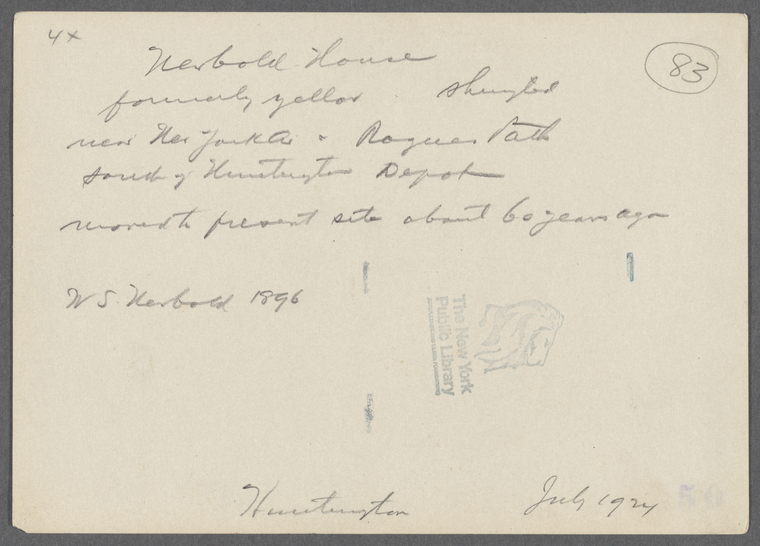 4x
83
Newbold House
formerly yellow shingled
near New York Av & Rogues Path
South of Huntington Depot
moved to present site about 60 years ago
W S. Newbold 1896
The New York
Public Library
Huntington July 1924
50